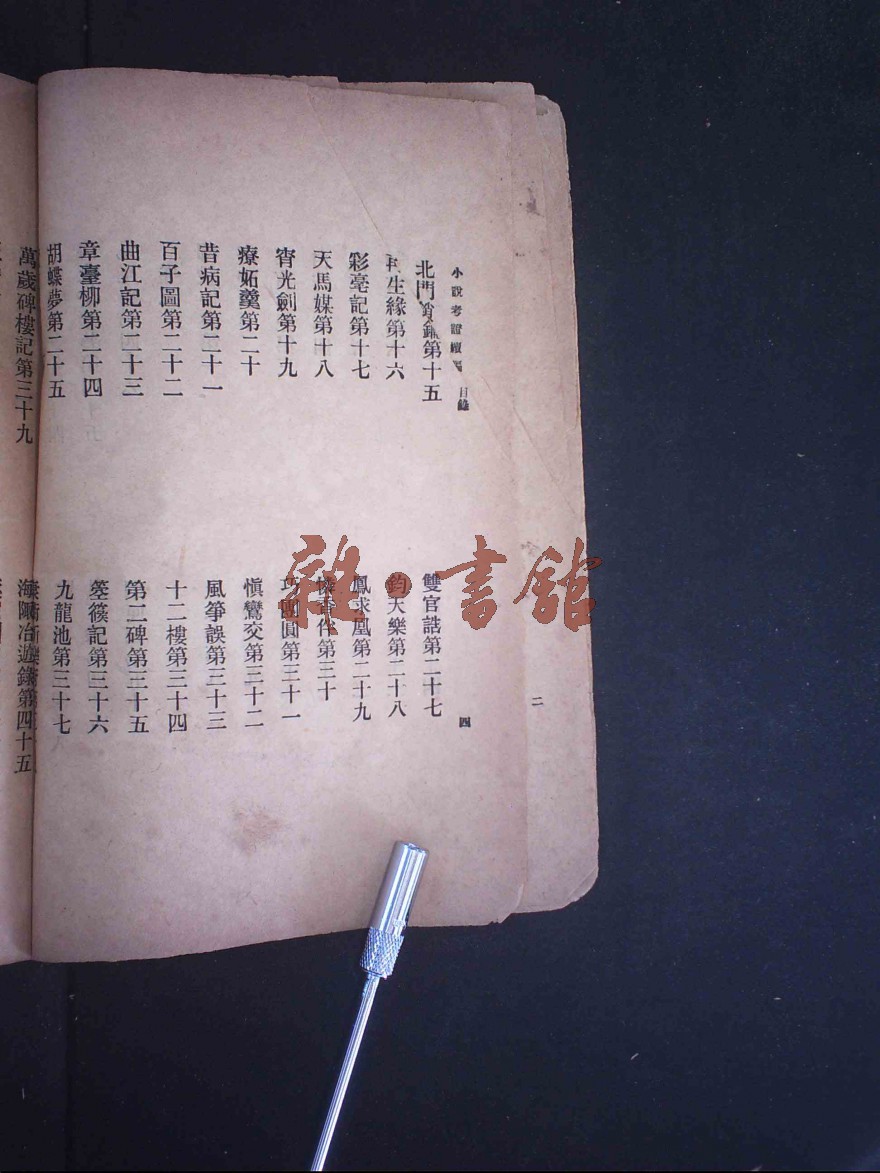 小說考證續編 目錄
北門鎖鑰第十五
再生緣第十六
彩毫記第十七
天馬媒第十八
宵光劍第十九
療妬羹第二十
昔病記第二十一
百子圖第二十二
曲江記第二十三
章臺柳第二十四
胡蝶夢第二十五
雙官誥第二十七
鈞天樂第二十八
鳳求凰第二十九
憐香伴第三十
巧團圓第三十一
愼鸞交第三十二
風箏誤第三十三
十二樓第三十四
第二碑第三十五
箜篌記第三十六
九龍池第三十七
四
二
萬歲碑樓記第三十九
海陬冶遊錄第四十五
雜·書館